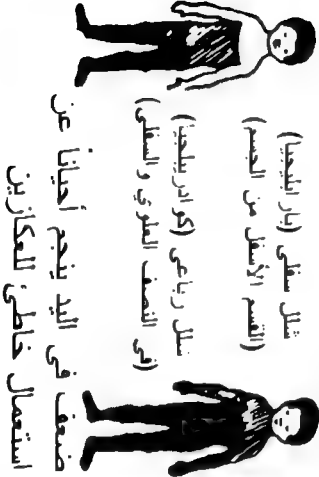 شلل سفلي (باراپليجيا)
(القسم الأسفل من الجسم)
شلل رباعي (كوادريپليجيا)
(في النصف العلوي والسفلي)
ضعف في اليد ينجم أحياناً عن
استعمال خاطئ للعكازين